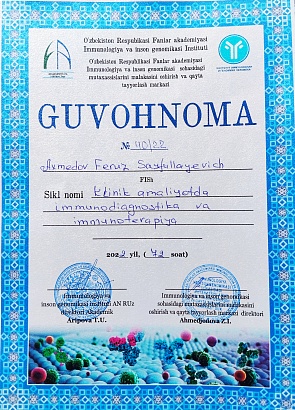 O'zbekiston Respublikasi Fanlar akademiyasi
Immunologiya va inson genomikasi Instituti
O'zbekiston Respublikasi Fanlar akademiyasi
Immunologiya va inson genomikasi sohasidagi
mutaxassislarni malakasini oshirish va qayta
tayyorlash markazi
GUVOHNOMA
№ 40/22
Axmedov Feruz Sayfullayevich
FISh
Sikl nomi Klinik amaliyotda
immunodiagnostika va
immunoterapiya
2022 yil, (72 soat)
Immunologiya va
inson genomikasi instituti AN RUz
direktori Akademik
Aripova T.U.
Immunologiya va inson genomikasi
sohasidagi mutaxassislarni malakasini
oshirish va qayta tayyorlash markazi direktori
Ahmedjonova Z.I.